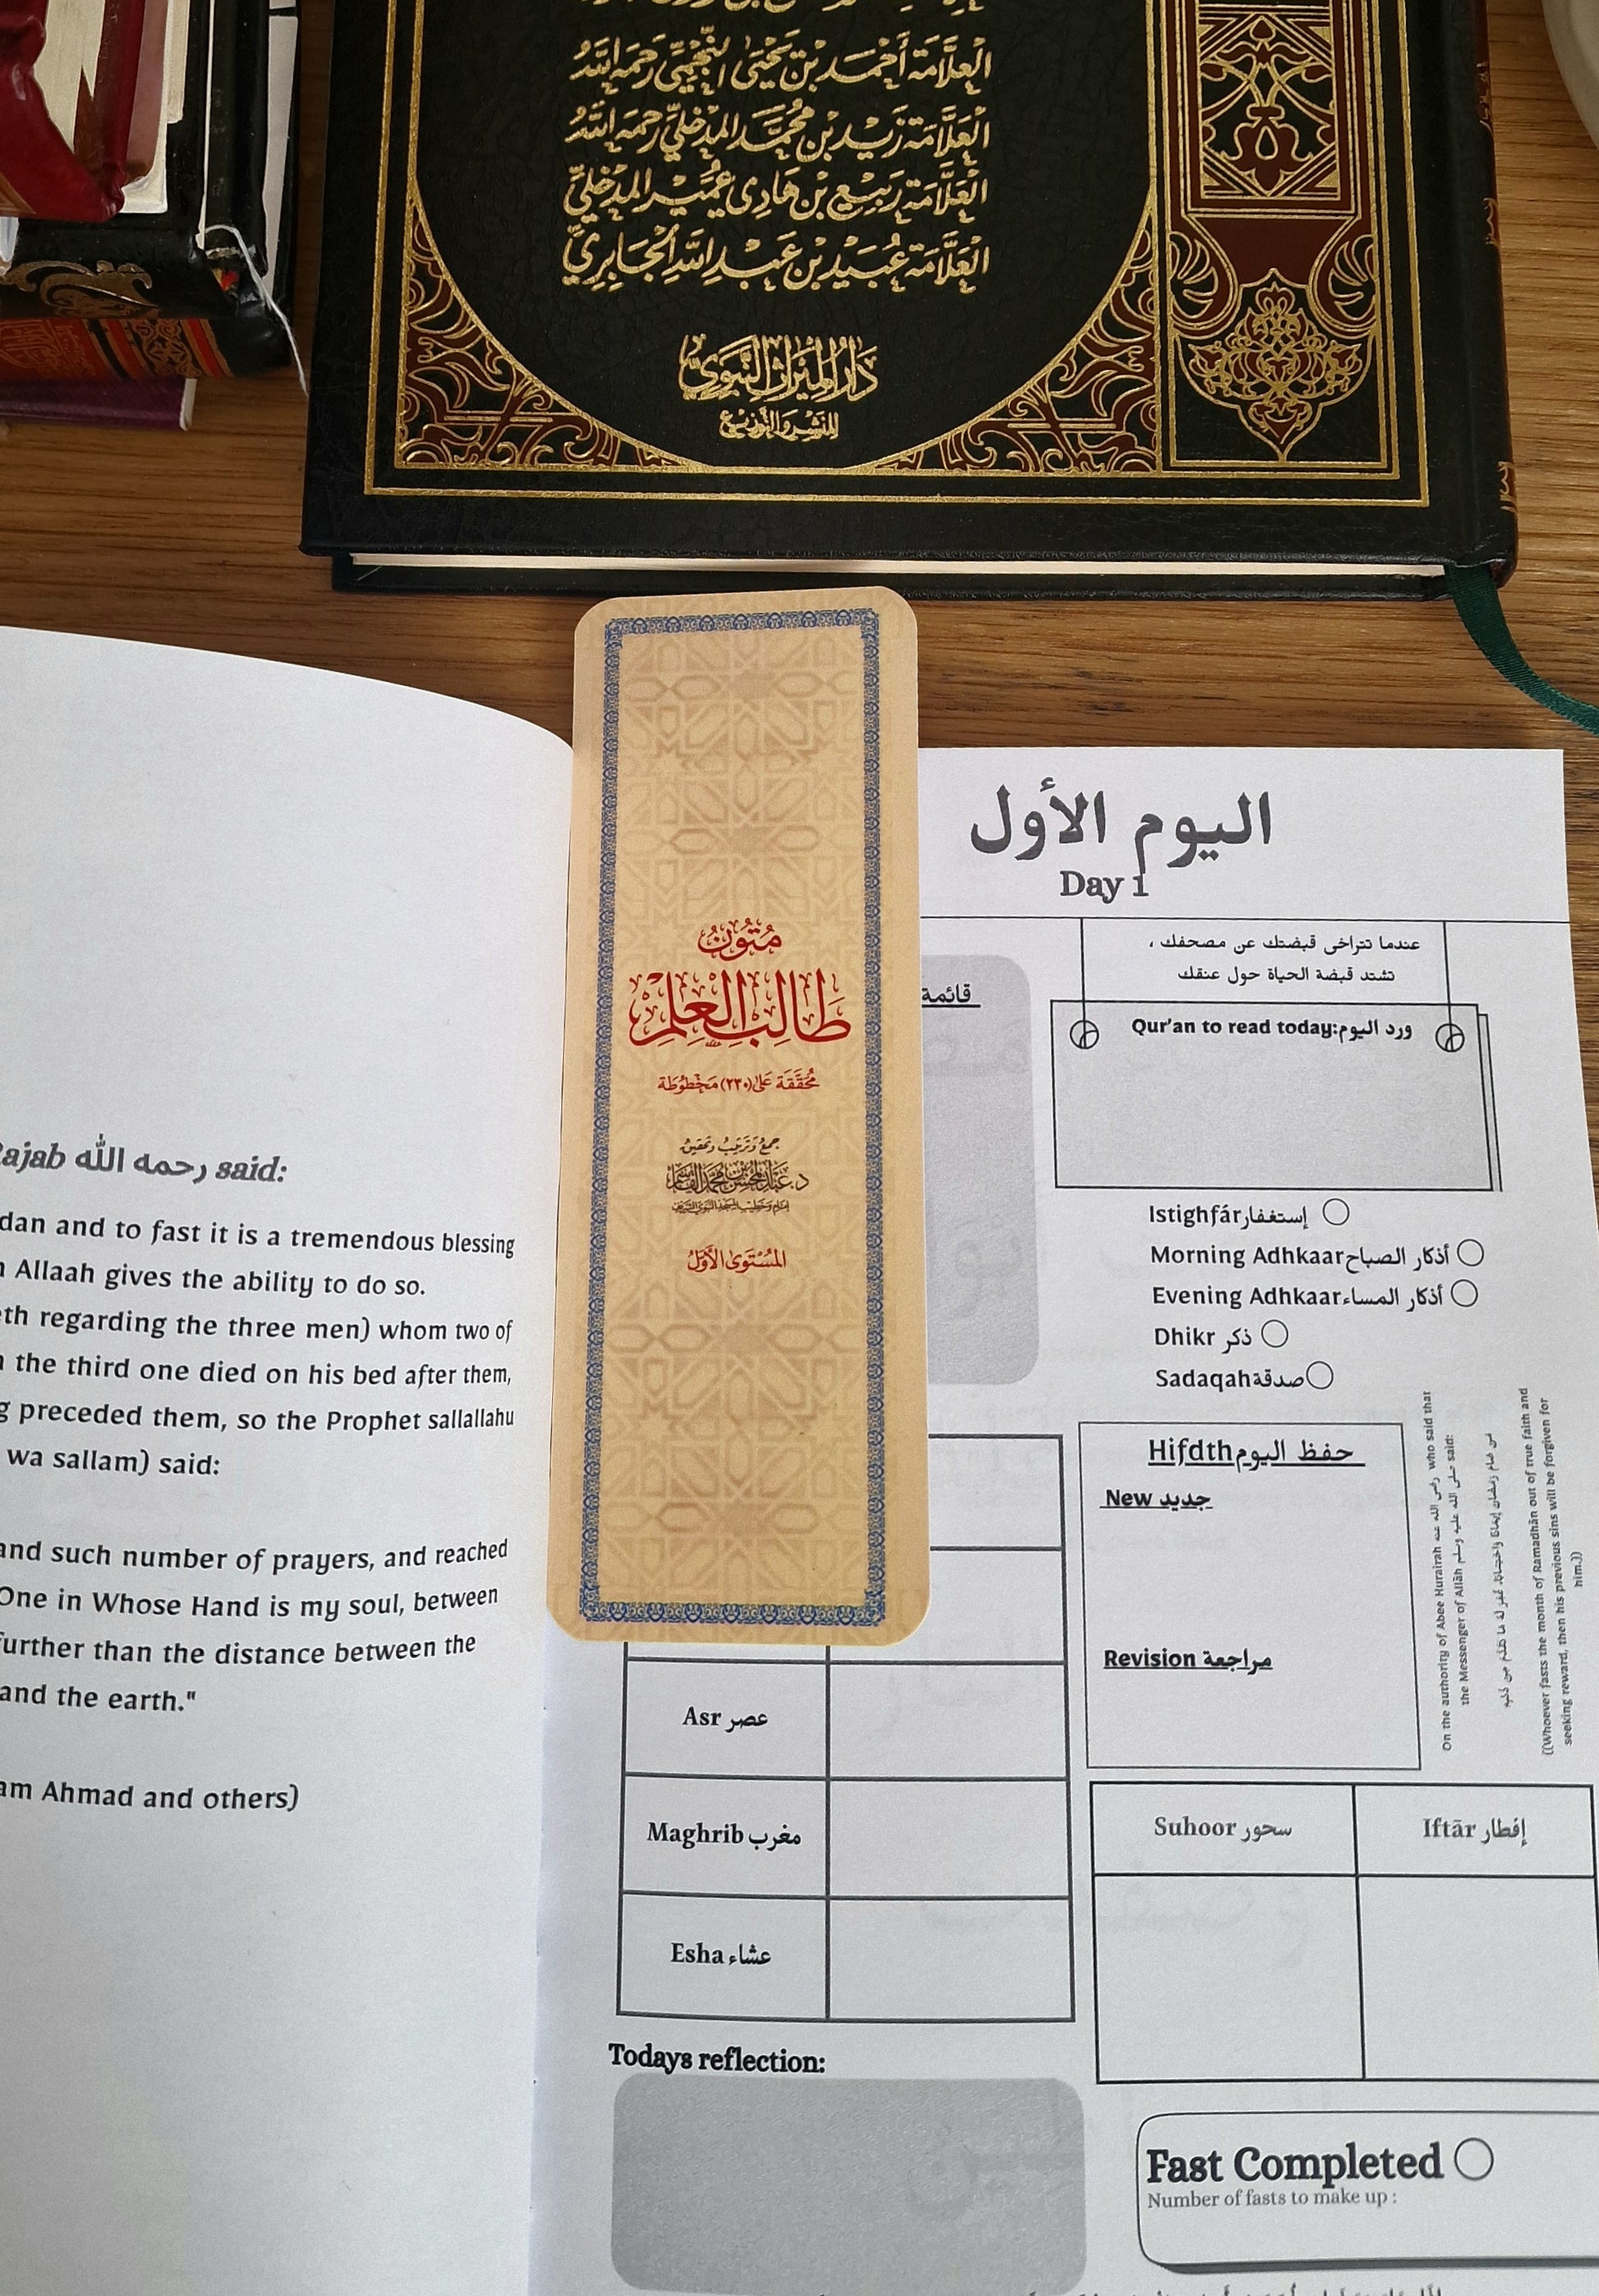 العلامة أحمد بن يحيى النجمي رحمه الله
العلامة زيد بن محمد المدخلي رحمه الله
العلامة ربيع بن هادي عمير المدخلي
العلامة عبيد بن عبد الله الجابري
دار الميراث النبوي
للنشر والتوزيع
مُتُون
طَالِبِ العِلْمِ
مُحَقَّقَة عَلَى (٢٣٠) مَخْطُوطَة
جمع وترتيب وتحقيق
د. عبد المحسن بن محمد القاسم
إمام وخطيب المسجد النبوي الشريف
المُسْتَوَى الأَوَّل
ajab رحمه الله said:
dan and to fast it is a tremendous blessing
Allaah gives the ability to do so.
eth regarding the three men) whom two of
the third one died on his bed after them,
g preceded them, so the Prophet sallallahu
wa sallam) said:
and such number of prayers, and reached
One in Whose Hand is my soul, between
further than the distance between the
and the earth."
am Ahmad and others)
اليوم الأول
Day 1
عندما تتراخى قبضتك عن مصحفك ،
تشتد قبضة الحياة حول عنقك
قائمة
Qur'an to read today:ورد اليوم
Istighfárإستغفار
Morning Adhkaarأذكار الصباح
Evening Adhkaarأذكار المساء
Dhikr ذكر
Sadaqahصدقة
Hifdthحفظ اليوم
New جديد
Revision مراجعة
On the authority of Abee Hurairah رضي الله عنه who said that
the Messenger of Allāh صلى الله عليه وسلم said:
من صام رمضان إيمانا واحتسابا، غفر له ما تقدم من ذنبه
((Whoever fasts the month of Ramadhān out of true faith and
seeking reward, then his previous sins will be forgiven for
him.))
Asr عصر
Maghrib مغرب
Esha عشاء
Suhoor سحور
Iftār إفطار
Todays reflection:
Fast Completed
Number of fasts to make up :